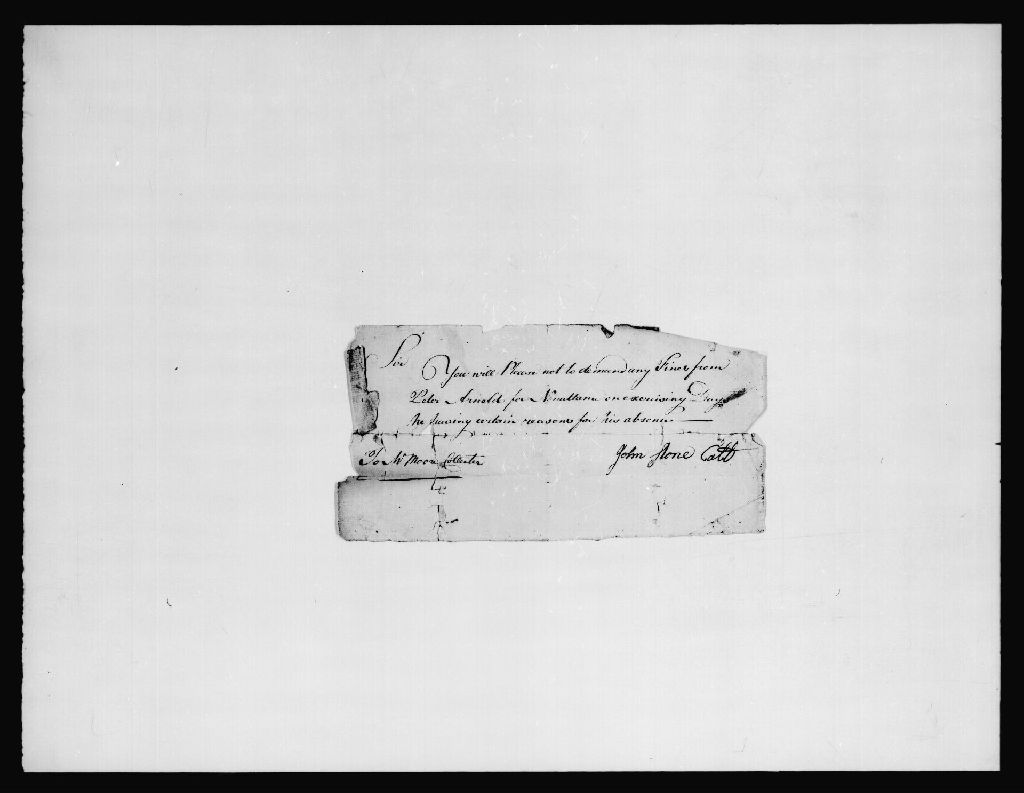 Sir
You will Please not to demand any Fines from
Peter Arnold for on excersising Days
he having certain reasons for his absence
To Mr Moore Collecter
John Stone Capt